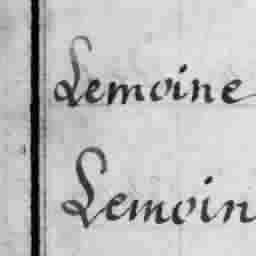 Lemoine
Lemoin